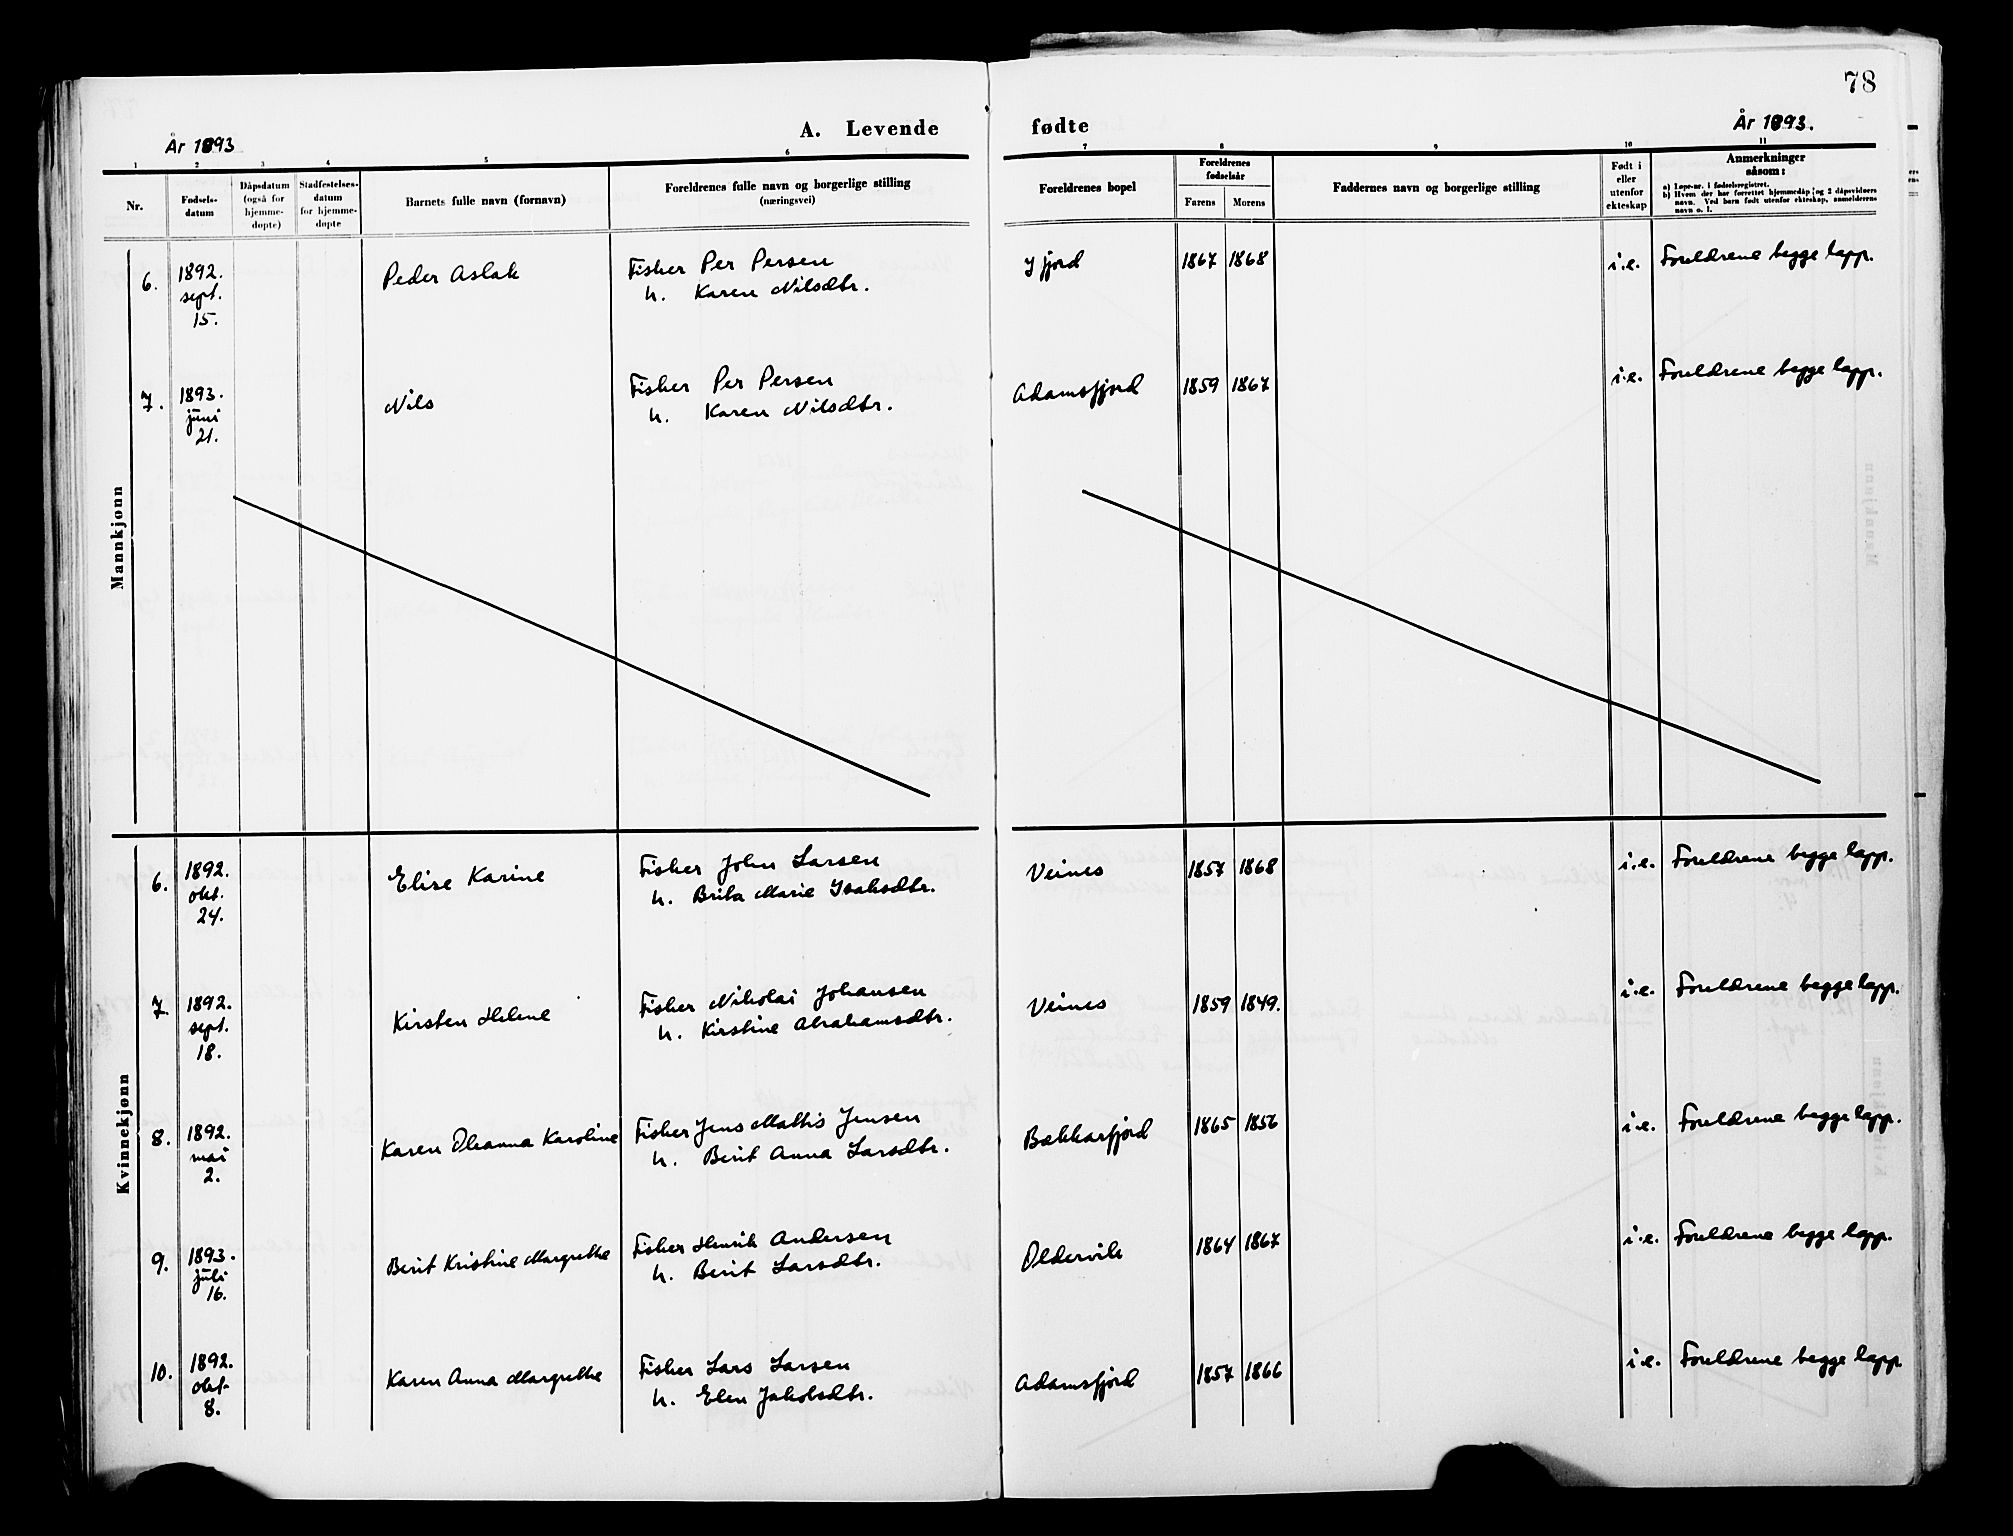 78
År 1893
A. Levende
fødte
År 1893.
1 2 3 4 5 6 7 8 9 10 11
Nr.
Fødsels-
datum
Dåpsdatum
(også for
hjemme-
døpte)
Stadfestelses-
datum
for hjemme-
døpte
Barnets fulle navn (fornavn)
Foreldrenes fulle navn og borgerlige stilling
(næringsvei)
Foreldrenes bopel
Foreldrenes
fødselsår
Farens
Morens
Faddernes navn og borgerlige stilling
Født i
eller
utenfor
ekteskap
Anmerkninger
såsom:
a) Løpe-nr. i fødselsregistret.
b) Hvem der har forrettet hjemmedåp og 2 dåpsvidners
navn. Ved barn født utenfor ekteskap, anmelderens
navn o. l.
Mannkjønn
6.
1892.
sept.
15.
Peder Aslak
Fisker Per Persen
h. Karen Nilsdtr.
Ifjord
1867 1868
i.e.
Foreldrene begge lapp.
7.
1893.
juni
21.
Nils
Fisker Per Persen
h. Karen Nilsdtr.
Adamsfjord
1859 1867
i.e.
Foreldrene begge lapp.
Kvinnekjønn
6.
1892.
okt.
24.
Elise Karine
Fisker John Larsen
h. Brita Marie Isaksdtr.
Veines
1857 1868
i.e.
Foreldrene begge lapp.
7.
1892.
sept.
18.
Kirsten Helene
Fisker Nikolai Johansen
h. Kirstine Abrahamsdtr.
Veines
1859 1849.
i.e.
Foreldrene begge lapp.
8.
1892.
mai
2.
Karen Oleanna Karoline
Fisker Jens Mathis Jensen
h. Berit Anna Larsdtr.
Bekkarfjord
1865 1856
i.e.
Foreldrene begge lapp.
9.
1893.
juli
16.
Berit Kristine Margrethe
Fisker Henrik Andersen
h. Berit Larsdtr.
Oldervik
1864 1867
i.e.
Foreldrene begge lapp.
10.
1892.
okt.
8.
Karen Anna Margrethe
Fisker Lars Larsen
h. Elen Jakobsdtr.
Adamsfjord
1857 1866
i.e.
Foreldrene begge lapp.